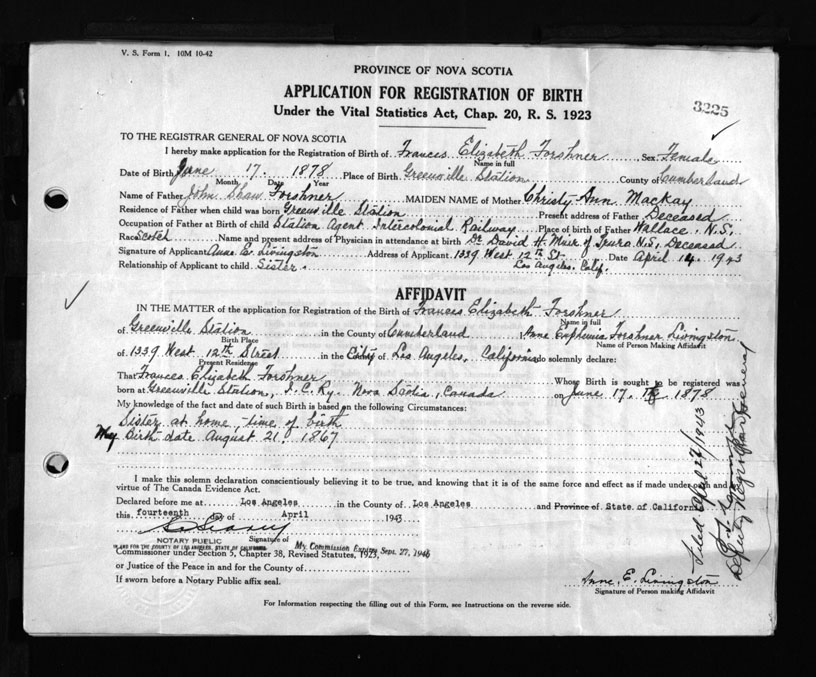 V. S. Form 1. 10M 10-42
PROVINCE OF NOVA SCOTIA
APPLICATION FOR REGISTRATION OF BIRTH
Under the Vital Statistics Act, Chap. 20, R. S. 1923
3225
TO THE REGISTRAR GENERAL OF NOVA SCOTIA
I hereby make application for the Registration of Birth of Frances Elizabeth Forshner Sex Female
Name in full
Date of Birth June 17. 1878 Place of Birth Greenville Station County of Cumberland
Month Date Year
Name of Father John Shaw Forshner MAIDEN NAME of Mother Christy Ann MacKay
Residence of Father when child was born Greenville Station Present address of Father Deceased
Occupation of Father at Birth of child Station Agent Intercolonial Railway Place of birth of Father Wallace, N.S.
Race Scotch Name and present address of Physician in attendance at birth Dr. David H. Muir of Truro N.S. Deceased
Signature of Applicant Anne E. Livingston Address of Applicant 1339 West 12th St. Date April 14 1943
Los Angeles, Calif.
Relationship of Applicant to child Sister.
AFFIDAVIT
IN THE MATTER of the application for Registration of the Birth of Frances Elizabeth Forshner
Name in full
of Greenville Station in the County of Cumberland Anne Euphemia Forshner Livingston
Birth Place Name of Person Making Affidavit
of 1339 West 12th Street in the City of Los Angeles, California do solemnly declare:
Present Residence
That Frances Elizabeth Forshner Whose Birth is sought to be registered was
born at Greenville Station, I.C.Ry. Nova Scotia, Canada on June 17. 1878
My knowledge of the fact and date of such Birth is based on the following Circumstances:
Sister at home, time of birth
My Birth date August 21. 1867
I make this solemn declaration conscientiously believing it to be true, and knowing that it is of the same force and effect as if made under oath and by
virtue of The Canada Evidence Act.
Declared before me at Los Angeles in the County of Los Angeles and Province of State of California
this fourteenth day of April 1943
NOTARY PUBLIC Signature of
IN AND FOR THE COUNTY OF LOS ANGELES, STATE OF CALIFORNIA My Commission Expires Sept. 27, 1946
Commissioner under Section 5, Chapter 38, Revised Statutes, 1923,
or Justice of the Peace in and for the County of
If sworn before a Notary Public affix seal.
Anne E. Livingston
Signature of Person making Affidavit
For Information respecting the filling out of this Form, see Instructions on the reverse side.
Filed April 27/1943
Deputy Registrar General